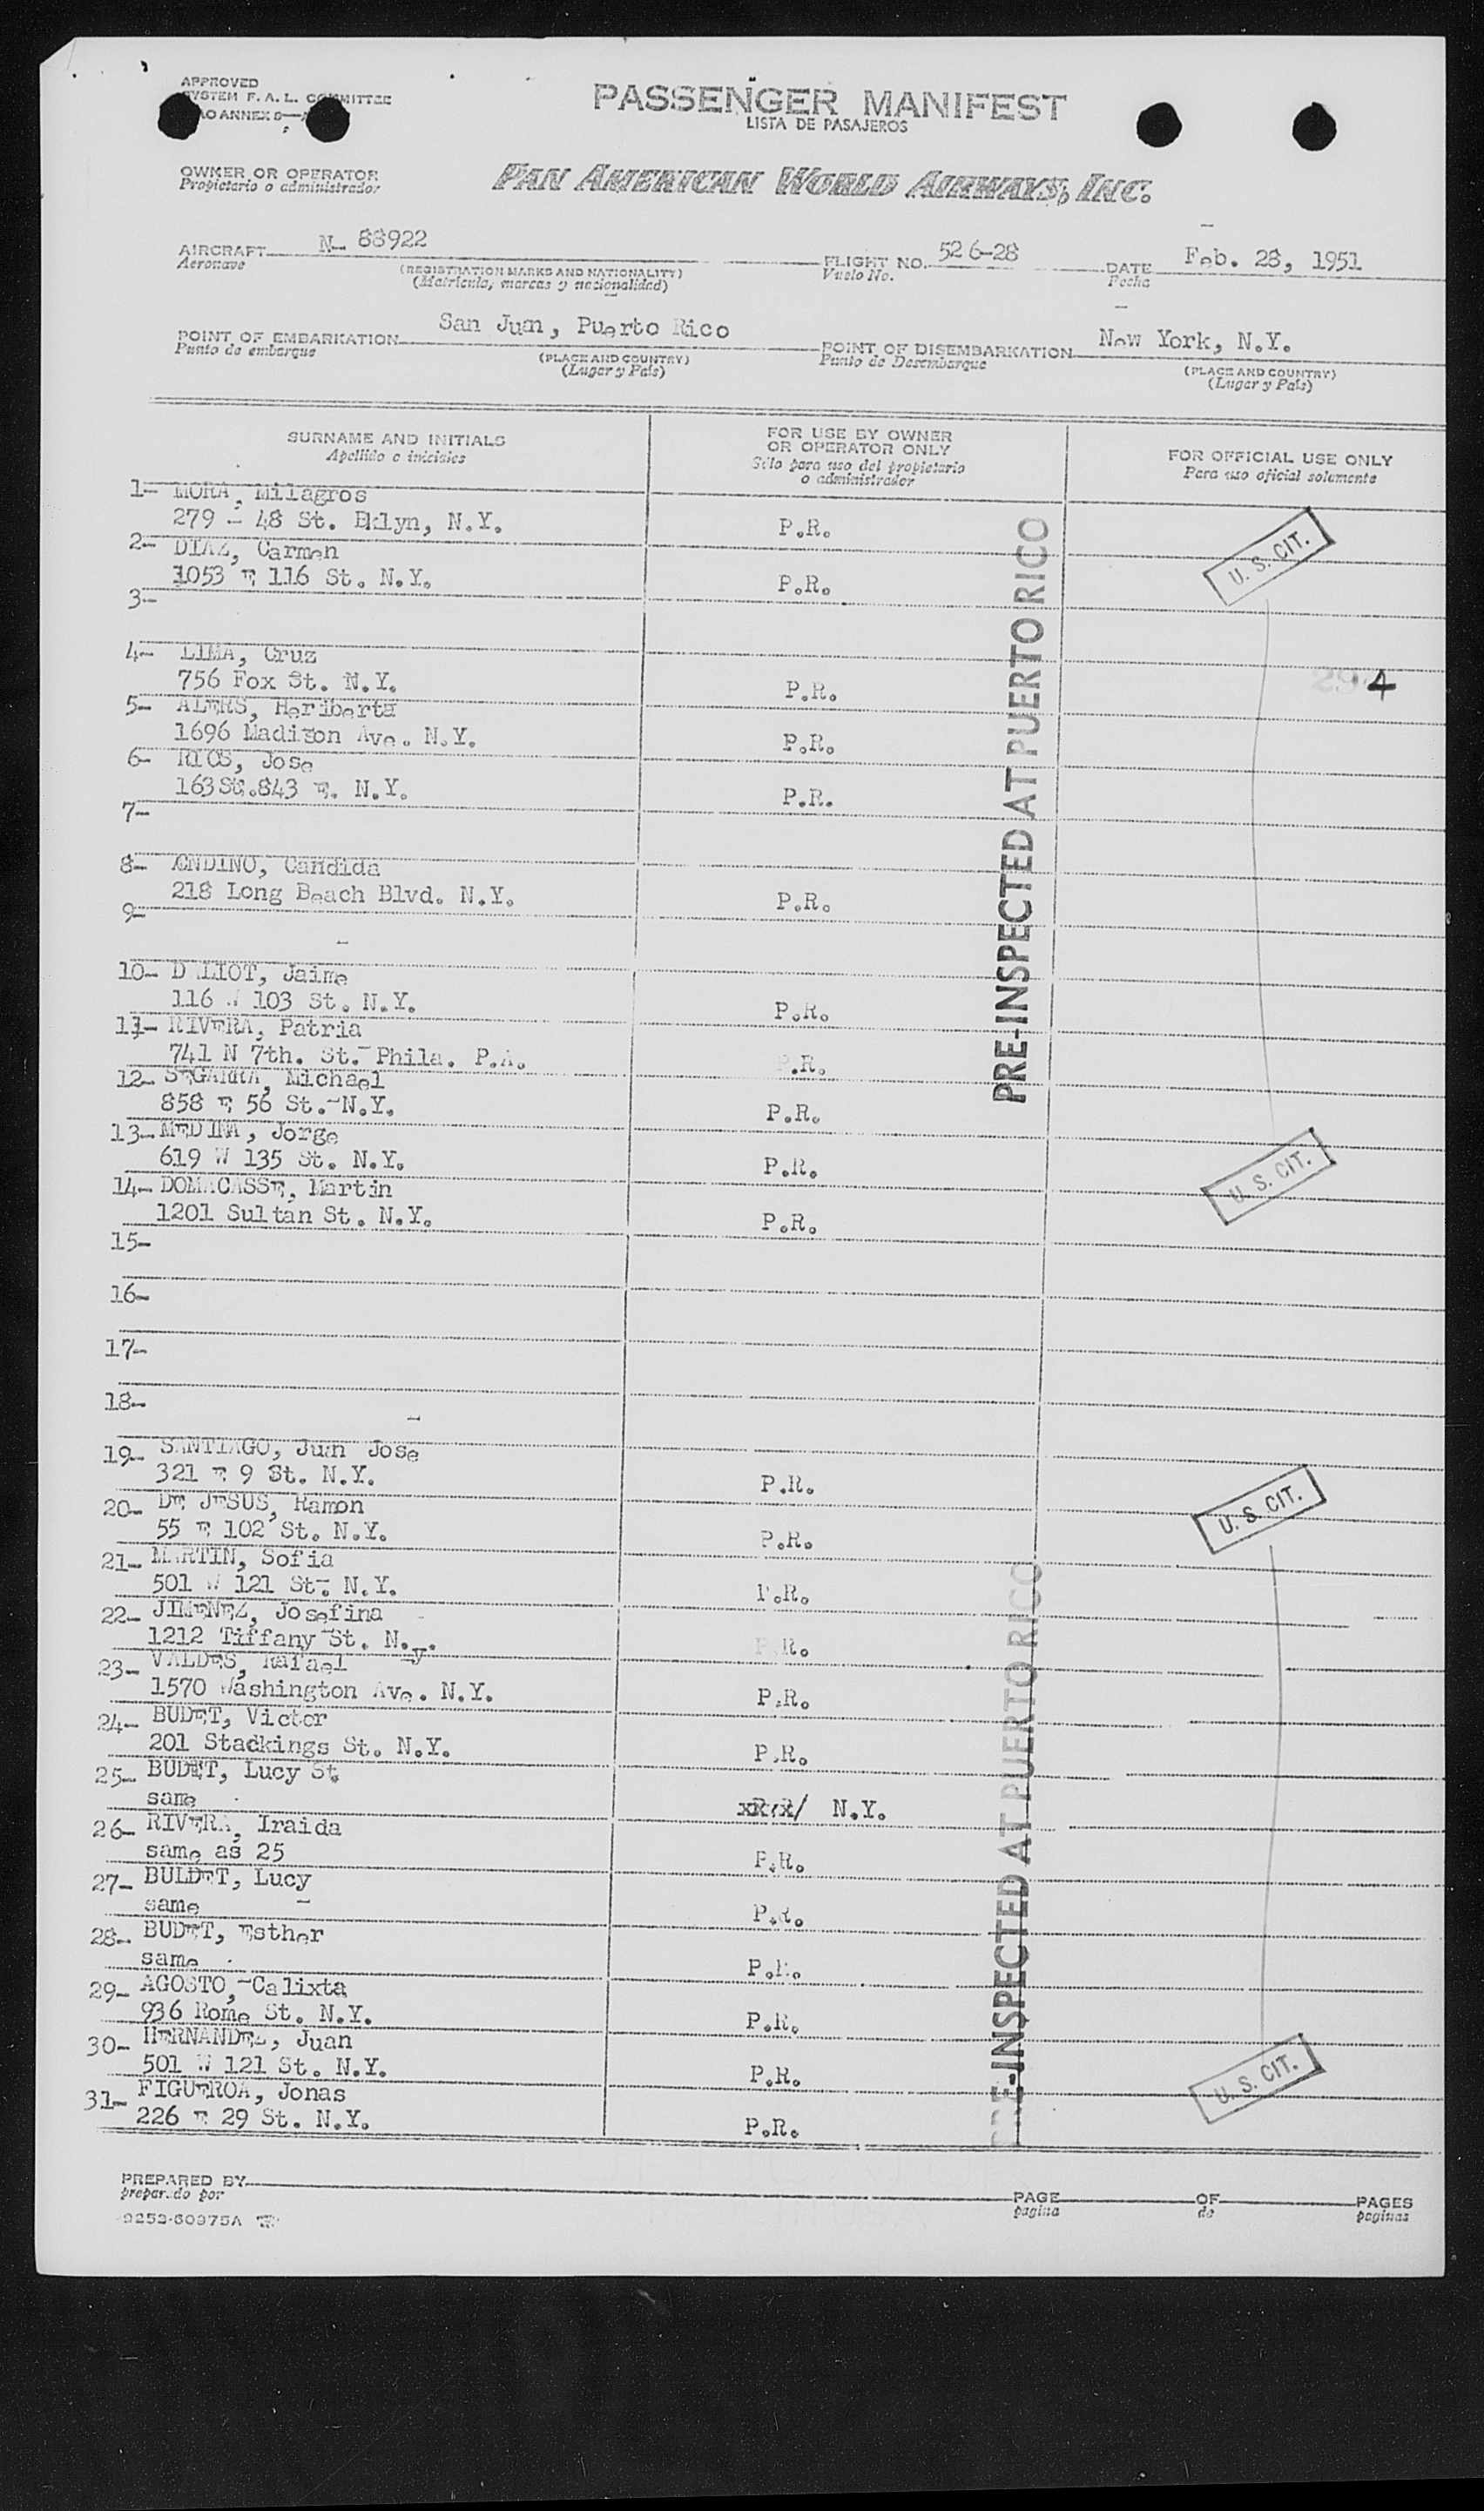 APPROVED
SYSTEM F. A. L. COMMITTEE
AO ANNEX 9—A
PASSENGER MANIFEST
LISTA DE PASAJEROS
OWNER OR OPERATOR
Propietario o administrador
PAN AMERICAN WORLD AIRWAYS, INC.
AIRCRAFT N- 88922 FLIGHT NO. 526-28 DATE Feb. 28, 1951
Aeronave (REGISTRATION MARKS AND NATIONALITY) Vuelo No. Fecha
(Matricula, marcas y nacionalidad)
POINT OF EMBARKATION San Juan, Puerto Rico POINT OF DISEMBARKATION New York, N.Y.
Punto de embarque (PLACE AND COUNTRY) Punto de Desembarque (PLACE AND COUNTRY)
(Lugar y País) (Lugar y País)
SURNAME AND INITIALS FOR USE BY OWNER OR OPERATOR ONLY FOR OFFICIAL USE ONLY
Apellido e iniciales Sólo para uso del propietario o administrador Para uso oficial solamente
1- MORA, Milagros
279 - 48 St. Bklyn, N.Y. P.R.
2- DIAZ, Carmen U. S. CIT.
1053 E 116 St. N.Y. P.R.
3-
4- LIMA, Cruz
756 Fox St. N.Y. P.R. 4
5- ALERS, Heriberta
1696 Madison Ave. N.Y. P.R.
6- RIOS, Jose
163St.843 E. N.Y. P.R.
7-
8- ANDINO, Candida
218 Long Beach Blvd. N.Y. P.R.
9-
10- DALIOT, Jaime
116 W 103 St. N.Y. P.R.
11- RIVERA, Patria
741 N 7th. St. Phila. P.A. P.R.
12- SEGARRA, Michael
858 E 56 St. N.Y. P.R.
13- MEDINA, Jorge
619 W 135 St. N.Y. P.R. U. S. CIT.
14- DOMACASSE, Martin
1201 Sultan St. N.Y. P.R.
15-
16-
17-
18-
PRE-INSPECTED AT PUERTO RICO
19- SANTIAGO, Juan Jose
321 E 9 St. N.Y. P.R.
20- DE JESUS, Ramon U. S. CIT.
55 E 102 St. N.Y. P.R.
21- MARTIN, Sofia
501 W 121 St. N.Y. P.R.
22- JIMENEZ, Josefina
1212 Tiffany St. N.y. P.R.
23- VALDES, Rafael
1570 Washington Ave. N.Y. P.R.
24- BUDET, Victor
201 Stadkings St. N.Y. P.R.
25- BUDET, Lucy St
same N.Y.
26- RIVERA, Iraida
same as 25 P.R.
27- BULDET, Lucy
same P.R.
28- BUDET, Esther
same P.R.
29- AGOSTO, Calixta
936 Rome St. N.Y. P.R.
30- HERNANDEZ, Juan
501 W 121 St. N.Y. P.R. U. S. CIT.
31- FIGUEROA, Jonas
226 E 29 St. N.Y. P.R.
PRE-INSPECTED AT PUERTO RICO
PREPARED BY PAGE OF PAGES
preparado por pagina de paginas
9252-60975A